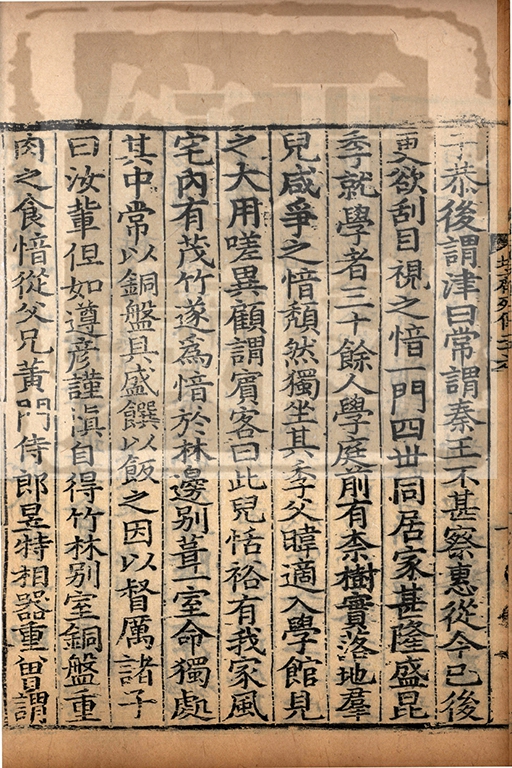 子恭後謂津曰常謂秦王不甚察惠從今已後
更欲刮目視之愔一門四世同居家甚隆盛昆
季就學者三十餘人學庭前有柰樹實落地羣
兒咸爭之愔頹然獨坐其季父暐適入學館見
之大用嗟異顧謂賓客曰此兒恬裕有我家風
宅內有茂竹遂爲愔於林邊別葺一室命獨處
其中常以銅盤具盛饌以飯之因以督厲諸子
曰汝輩但如遵彥謹愼自得竹林別室銅盤重
肉之食愔從父兄黃門侍郎昱特相器重曾謂